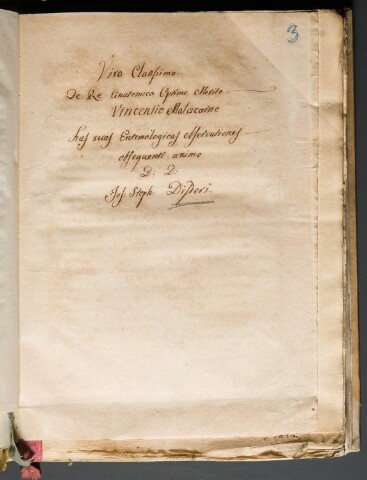 3
Viro Clarissimo
De Re Anatomica Optime Merito
Vincentio Malacarne
has suas Entomologicas observationes
obsequenti animo
D. D.
Jos. Steph.